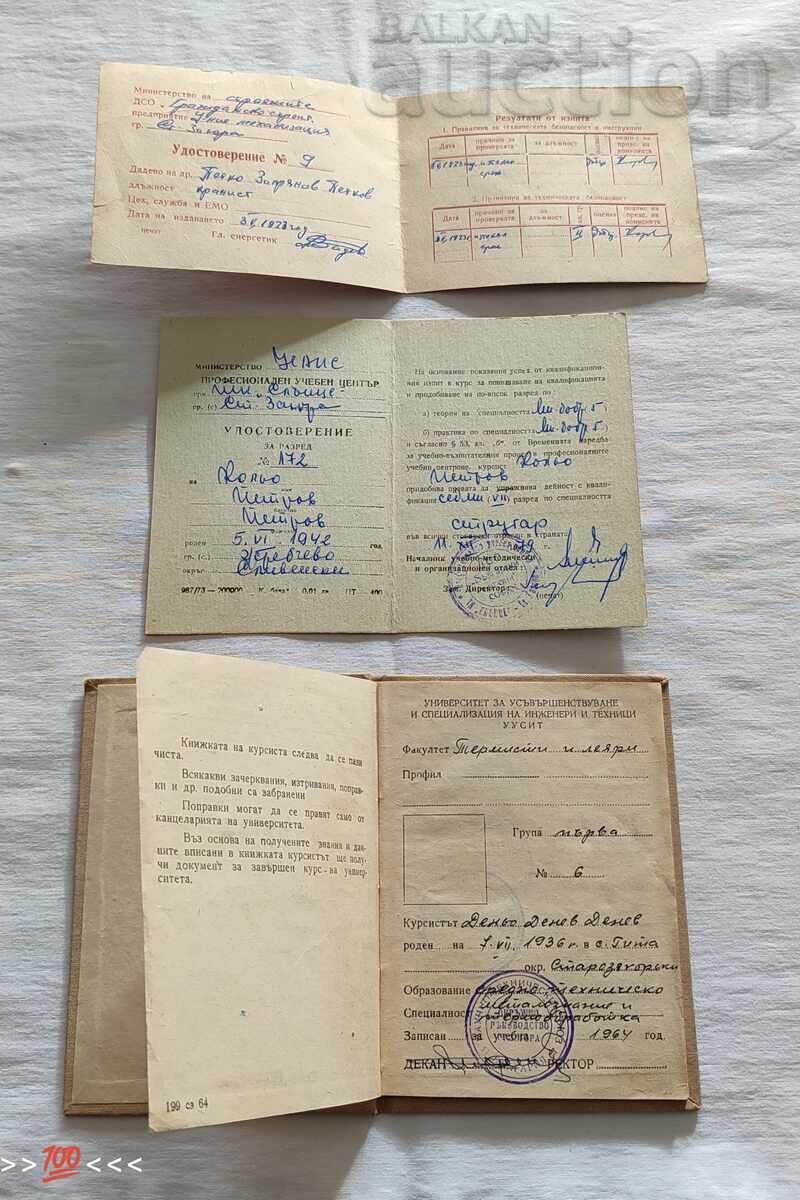 BALKAN
auction
Министерство на строежите
ДСО „Гражданско строит.
предприятие
механизация
гр. Ст. Загора
Удостоверение № 9
Дадено на др. Петко Запрянов Петков
длъжност кранист
Цех, служба и ЕМО
Дата на издаването
печат Гл. енергетик
Резултати от изпита
1. Правилник за техническата безопасност и инструкции
Дата причина за проверката за длъжност оценка подпис на предс. на комисията
2. Правилник за техническата безопасност
Дата причина за проверката за длъжност оценка подпис на предс. на комисията
МИНИСТЕРСТВО
ПРОФЕСИОНАЛЕН УЧЕБЕН ЦЕНТЪР
при
гр. (с) Ст. Загора
УДОСТОВЕРЕНИЕ
ЗА РАЗРЕД
№ 172
на Кольо
Петров
Петров
роден 5. VI 1942 год.
гр. (с.)
окръг Сливенски
987/73 — 200000
На основание показания успех от квалификационния изпит в курс за повишаване на квалификацията
и придобиване на по-висок разред по:
а) теория на специалността Мн. добр. 5
б) практика по специалността Мн. добр. 5
и съгласно § 53, ал. „б“ от Временната наредба
за учебно-възпитателния процес в професионалните
учебни центрове, курсист Кольо
Петров
придобива правата да упражнява дейност с квали-
фикация седми (VII) разред по специалността
стругар
във всички стопански отрасли в страната
Началник учебно-методически
и организационен отдел:
Зам. Директор:
(печат)
Книжката на курсиста следва да се пази
чиста.
Всякакви зачерквания, изтривания, поправ-
ки и др. подобни са забранени
Поправки могат да се правят само от
канцеларията на университета.
Въз основа на получените знания и дан-
ните вписани в книжката курсистът ще полу-
чи документ за завършен курс на универ-
ситета.
199 сз 64
УНИВЕРСИТЕТ ЗА УСЪВЪРШЕНСТВУВАНЕ
И СПЕЦИАЛИЗАЦИЯ НА ИНЖЕНЕРИ И ТЕХНИЦИ
УУСИТ
Факултет Термисти и леяри
Профил
Група първа
№ 6
Курсистът Деньо Денев Денев
роден на 7. VII. 1936 г. в с. Гита
окр. Старозагорски
Образование средно техническо
Специалност металознание и
термообработка
Записан за учебна 1964 год.
ДЕКАН РЕКТОР
>> 100 <<<